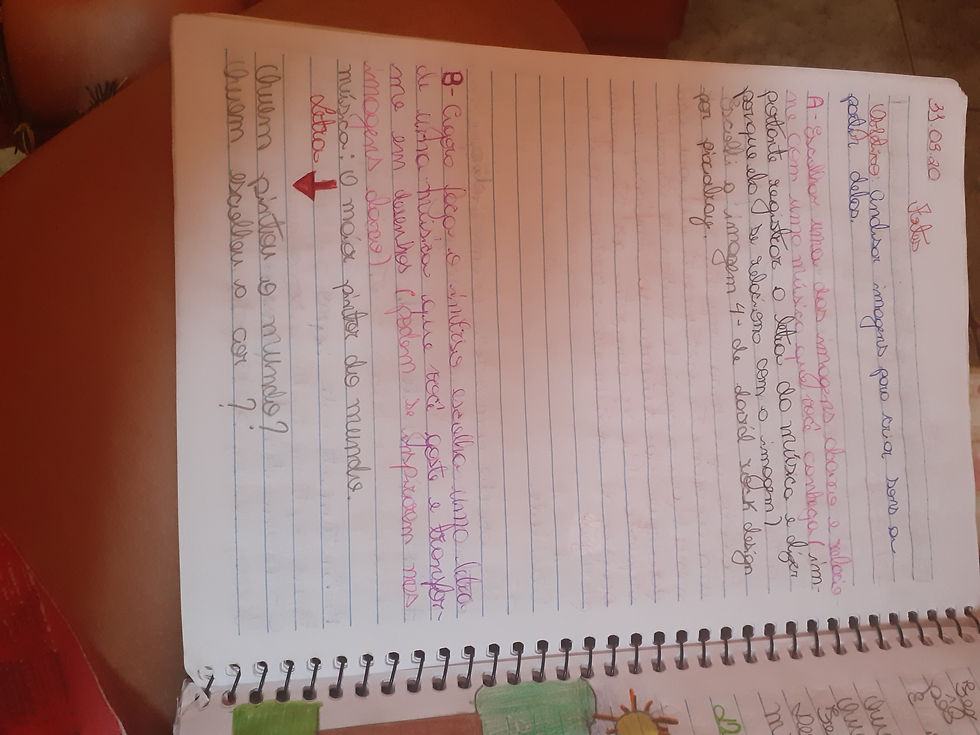 31 03.20
Artes
analisar imagens para criar sons a
partir delas.
A- Escolher uma das imagens abaixo e relacio
ne com uma música que você conheça (im-
portante registrar a letra da música e dizer
porque ela se relaciona com a imagem)
Escolhi a imagem 4- de david rock design
por pixabay.
B- Agora faça o inverso escolha uma letra
de uma música que você goste e transfor-
me em desenhos (podem se inspirarem nas
imagens dadas)
música: O maior pintor do mundo.
Letra
Quem pintou o mundo?
Quem escolheu a cor ?